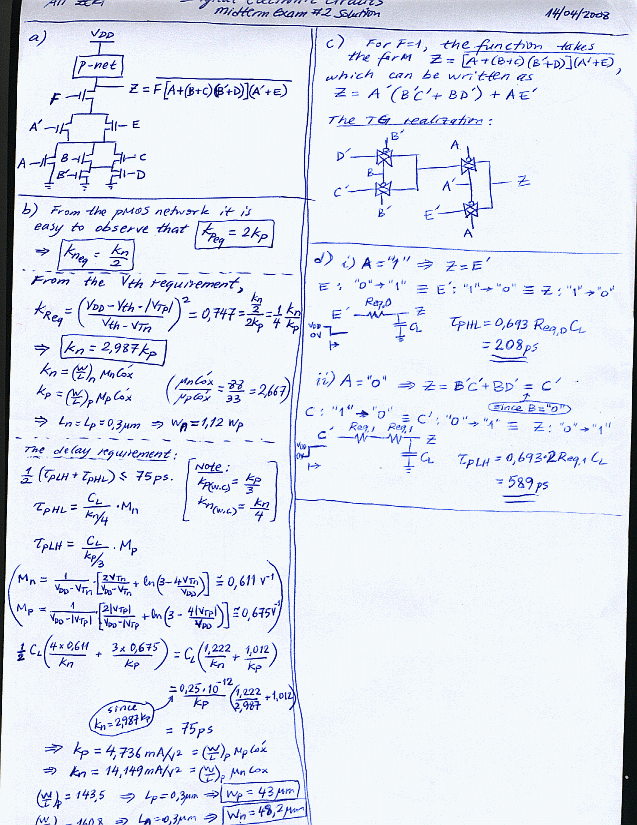 Digital Electronic Circuits
Midterm Exam #2 Solution
14/04/2008
a)
VDD
p-net
F
Z = F[A+(B+C)(B'+D)](A'+E)
A'
E
A
B
C
B'
D
b) From the pMOS network it is
easy to observe that kpeq = 2kp
⇒ kneq = kn/2
From the Vth requirement,
kReq = ((VDD - Vth - |VTp|)/(Vth - VTn))² = 0,747 = (kn/2)/(2kp) = 1/4 kn/kp
⇒ kn = 2,987kp
kn = (W/L)n μnCóx
kp = (W/L)p μpCóx
(μnCóx/μpCóx = 88/33 = 2,667)
⇒ Ln = Lp = 0,3μm ⇒ Wn = 1,12 Wp
The delay requirement:
1/2 (τpLH + τpHL) ≤ 75ps.
[Note:
kp(w.c) = kp/3
kn(w.c) = kn/4]
τpHL = CL/(kn/4) · Mn
τpLH = CL/(kp/3) · Mp
(Mn = 1/(VDD-VTn) [2VTn/(VDD-VTn) + ln(3 - 4VTn/VDD)] ≅ 0,611 V⁻¹
Mp = 1/(VDD-|VTp|) [2|VTp|/(VDD-|VTp|) + ln(3 - 4|VTp|/VDD)] ≅ 0,675V⁻¹)
1/2 CL(4x0,611/kn + 3x0,675/kp) = CL(1,222/kn + 1,012/kp)
since kn = 2,987kp
= 0,25·10⁻¹²/kp (1,222/2,987 + 1,012)
= 75ps
⇒ kp = 4,736 mA/V² = (W/L)p μpCóx
⇒ kn = 14,149 mA/V² = (W/L)p μnCox
(W/L)p = 143,5 ⇒ Lp = 0,3μm ⇒ Wp = 43μm
= 160,8 ⇒ Ln = 0,3μm ⇒ Wn = 48,2μm
c) For F=1, the function takes
the form Z = [A+(B+C)(B'+D)](A'+E),
which can be written as
Z = A'(B'C' + BD') + AE'
The TG realization:
B'
A
D'
B
C'
A'
Z
B'
E'
A
d) i) A="1" ⇒ Z=E'
E : "0"→"1" ≡ E': "1"→"0" ≡ Z : "1"→"0"
E' Req,0 Z
VDD
0V
CL
τpHL = 0,693 Req,0 CL
= 208ps
ii) A="0" ⇒ Z = B'C'+BD' = C'
since B="0"
C : "1"→"0" ≡ C' : "0"→"1" ≡ Z : "0"→"1"
C' Req,1 Req,1 Z
0V
CL
τpLH = 0,693·2Req,1 CL
= 589ps